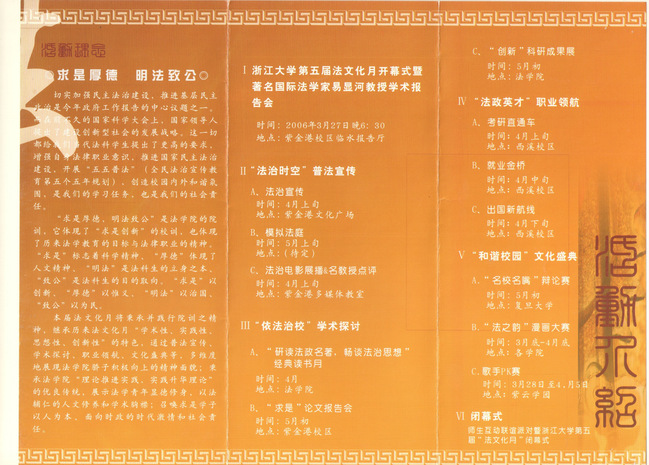 活动理念
求是厚德 明法致公
切实加强民主法治建设，推进基层民主
政治是今年政府工作报告的中心议题之一。
在最近不久的国家科学大会上，国家领导人
提出了建设创新型社会的发展战略。这一切
都给我们当代法科学生提出了更高的要求。
增强自身法律职业意识，推进国家民主法治
建设，开展“五五普法”（全民法治宣传教
育第五个五年规划），创造校园内外和谐氛
围，是我们的学习任务，也是我们的社会责
任。
“求是厚德，明法致公”是法学院的院
训，它体现了“求是创新”的校训，也体现
了历来法学教育的目标与法律职业的精神。
“求是”标志着科学精神，“厚德”体现了
人文精神，“明法”是法科生的立身之本，
“致公”是法科生的目的取向。“求是”以
创新，“厚德”以惟义，“明法”以治国，
“致公”以为民。
本届法文化月将秉承并践行院训之精
神，继承历来法文化月“学术性，实践性，
思想性，创新性”的特色，通过普法宣传，
学术探讨，职业领航，文化盛典等，多维度
地展现法学院骄子积极向上的精神面貌；秉
承法学院“理论推进实践，实践升华理论”
的优良传统，展示法学青年莹德修身，以法
辅仁的人文修养和学术胸襟；召唤求是学子
以人为本，面向时政的时代激情和社会责
任。
I 浙江大学第五届法文化月开幕式暨
著名国际法学家易显河教授学术报
告会
时间：2006年3月27日晚6：30
地点：紫金港校区临水报告厅
II “法治时空”普法宣传
A、法治宣传
时间：4月上旬
地点：紫金港文化广场
B、模拟法庭
时间：5月上旬
地点：(待定)
C、法治电影展播&名教授点评
时间：4月上旬
地点：紫金港多媒体教室
III “依法治校”学术探讨
A、“研读法政名著，畅谈法治思想”
经典读书月
时间：4月
地点：法学院
B、“求是”论文报告会
时间：5月初
地点：紫金港校区
C、“创新”科研成果展
时间：5月初
地点：法学院
IV “法政英才”职业领航
A、考研直通车
时间：4月上旬
地点：西溪校区
B、就业金桥
时间：4月中旬
地点：西溪校区
C、出国新航线
时间：4月下旬
地点：西溪校区
V “和谐校园”文化盛典
A、“名校名嘴”辩论赛
时间：5月初
地点：复旦大学
B、“法之韵”漫画大赛
时间：3月底-4月底
地点：各学院
C、歌手PK赛
时间：3月28日至4月5日
地点：紫云学园
VI 闭幕式
师生互动联谊派对暨浙江大学第五
届“法文化月”闭幕式
活动介绍